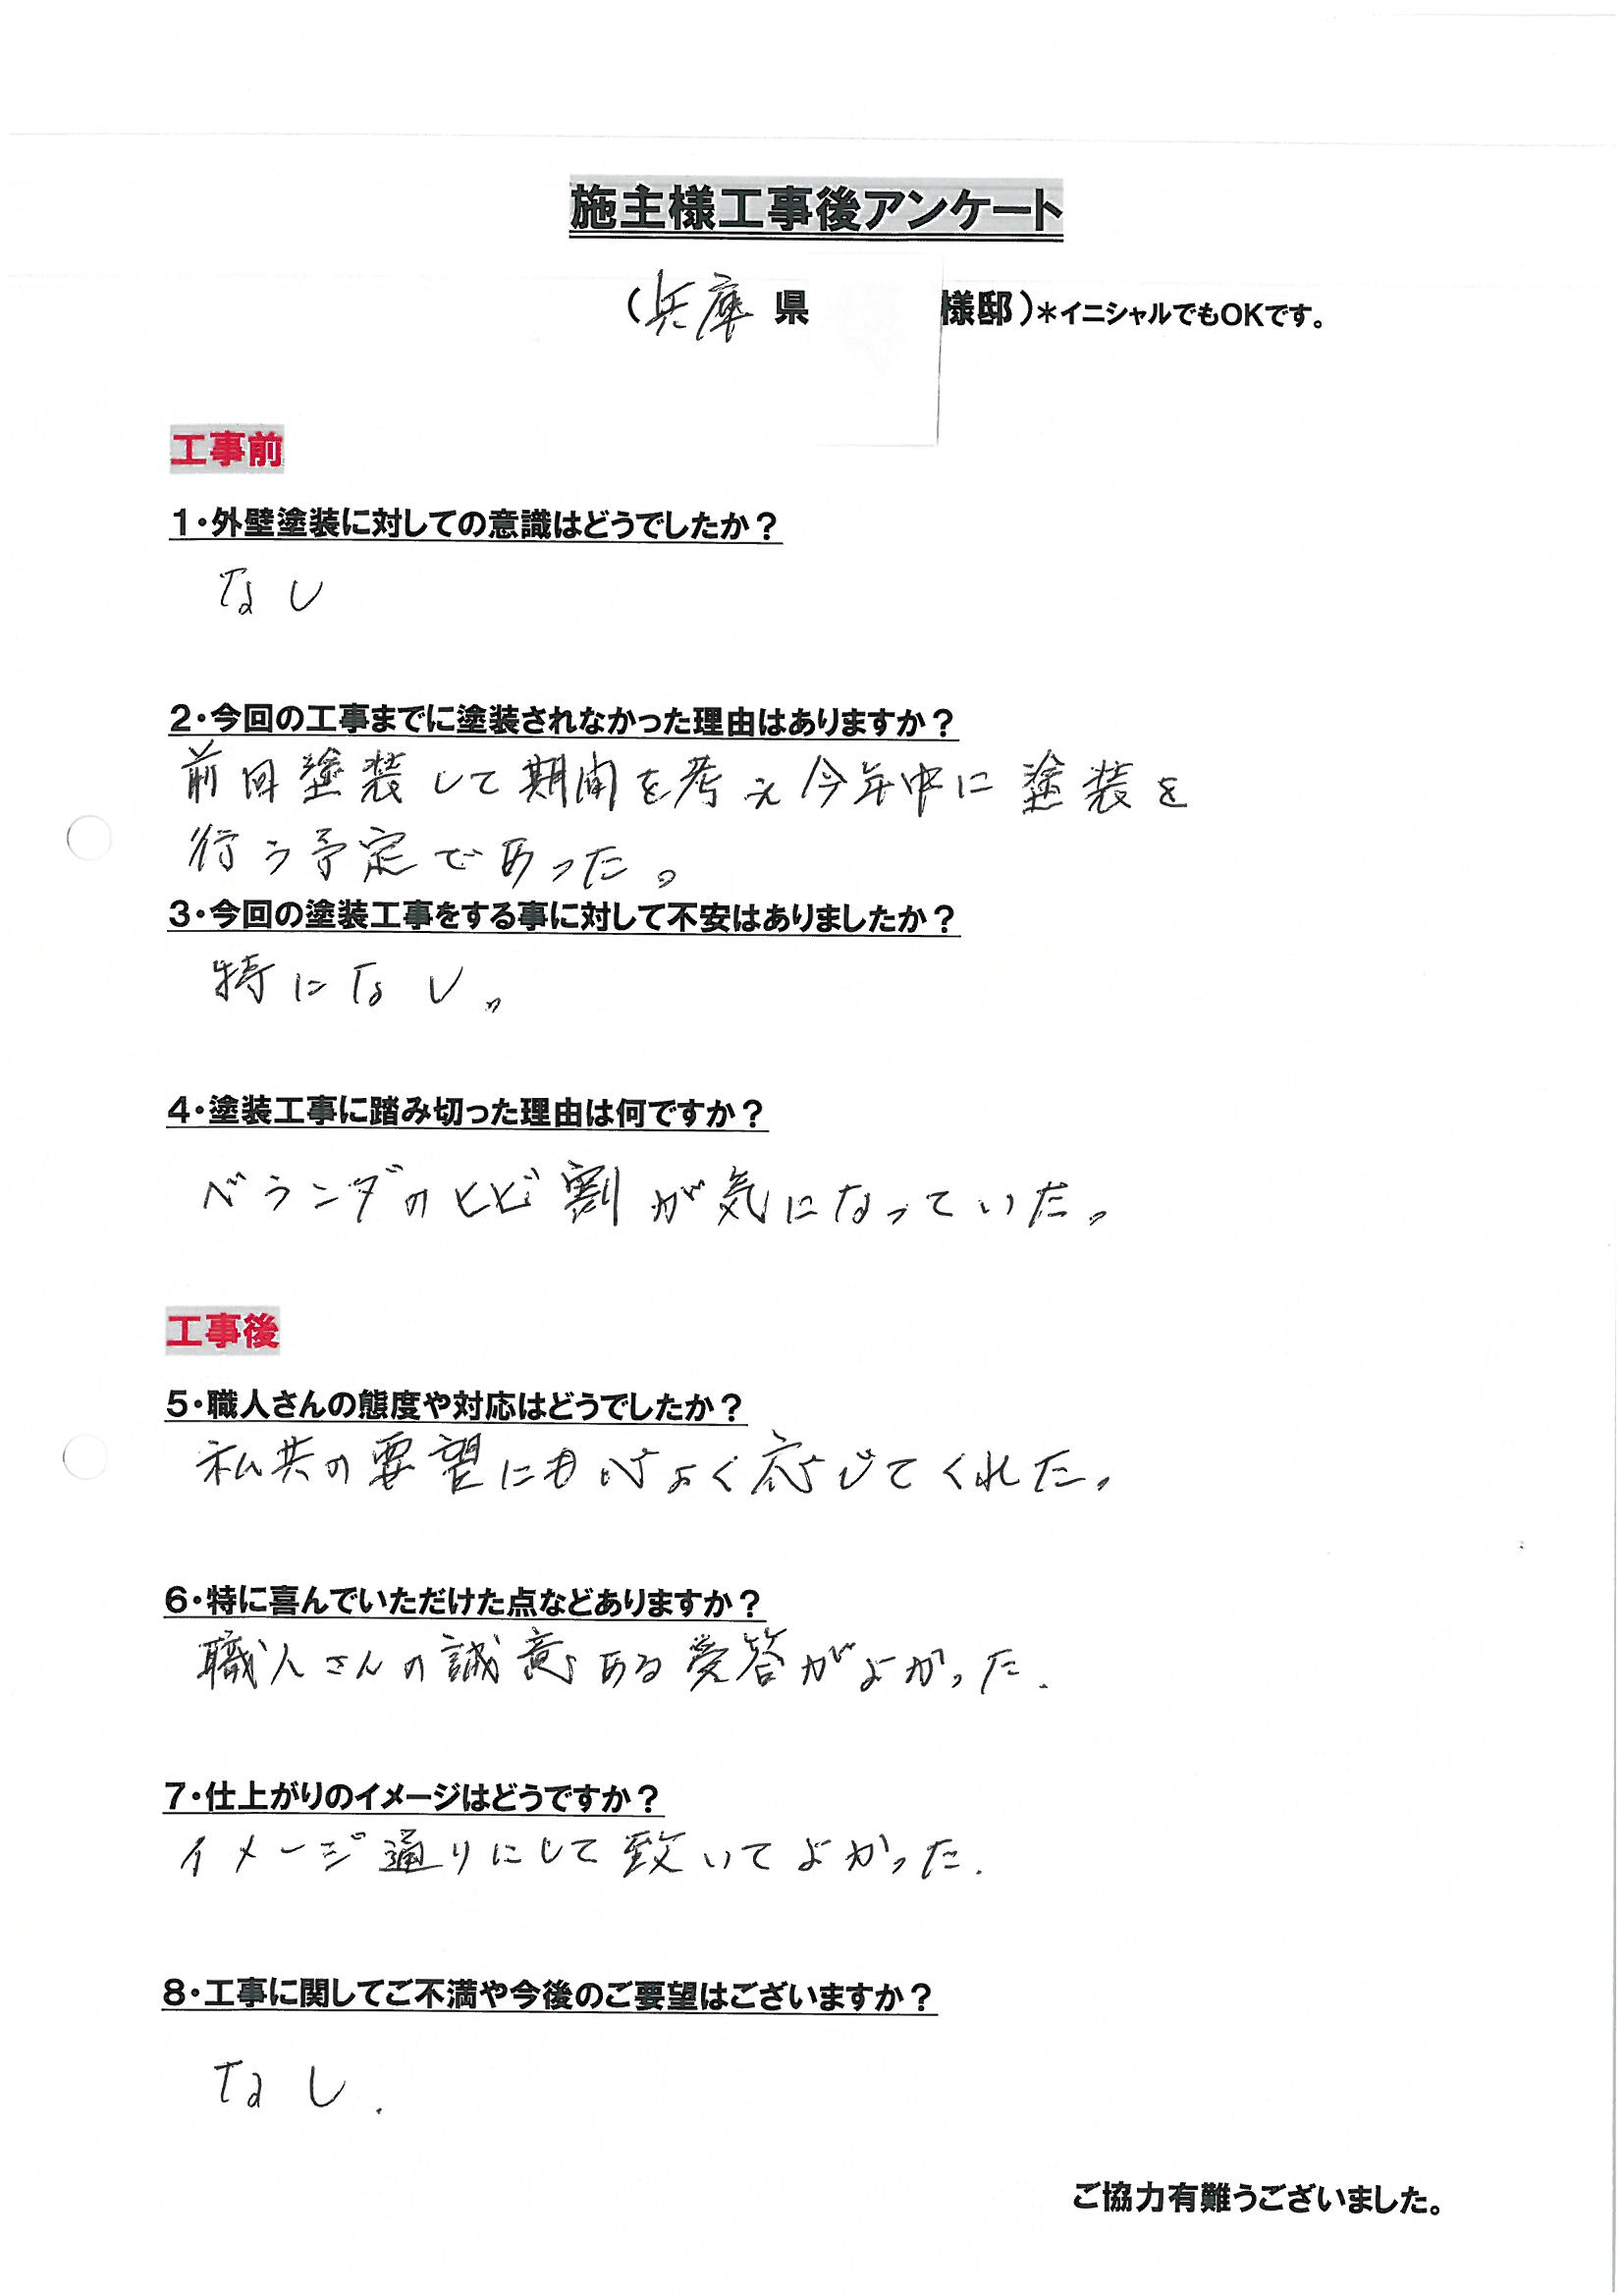 施主様工事後アンケート
(兵庫県 様邸)*イニシャルでもOKです。
工事前
1・外壁塗装に対しての意識はどうでしたか?
なし
2・今回の工事までに塗装されなかった理由はありますか?
前回塗装して期間を考え今年中に塗装を
行う予定であった。
3・今回の塗装工事をする事に対して不安はありましたか?
特になし。
4・塗装工事に踏み切った理由は何ですか?
ベランダのヒビ割が気になっていた。
工事後
5・職人さんの態度や対応はどうでしたか?
私共の要望にも心よく応じてくれた。
6・特に喜んでいただけた点などありますか?
職人さんの誠意ある受答がよかった.
7・仕上がりのイメージはどうですか?
イメージ通りにして致いてよかった.
8・工事に関してご不満や今後のご要望はございますか?
なし.
ご協力有難うございました。